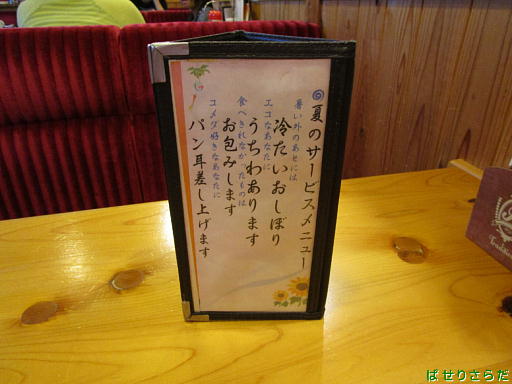 ◎夏のサービスメニュー
暑い外のあとには
冷たいおしぼり
エコなあなたに
うちわあります
食べきれなかったものは
お包みします
コメダ好きなあなたに
パン耳差し上げます
ぱせりさらだ